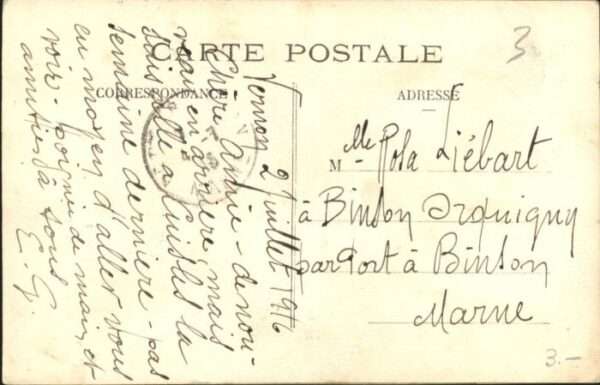 3
CARTE POSTALE
CORRESPONDANCE
ADRESSE
Vernon 2 Juillet 1916
Chère amie - de nou-
veau en arrière, mais
suis allé à la
semaine dernière - pas
eu moyen d'aller vous
voir - poignée de main et
amitiés à tous
E. G.
Melle Rosa Liébart
à Binson Orquigny
par Port à Binson
Marne
3.-